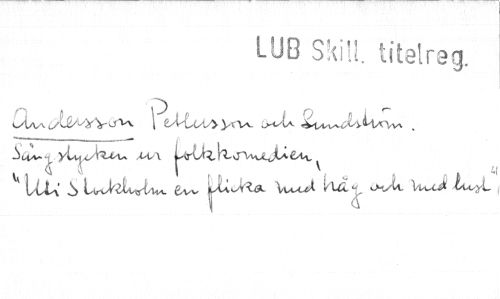 LUB Skill. titelreg.
Andersson Pettersson och Lundström.
Sångstycken ur folkkomedien,
"Uti Stockholm en flicka med håg och med lust",